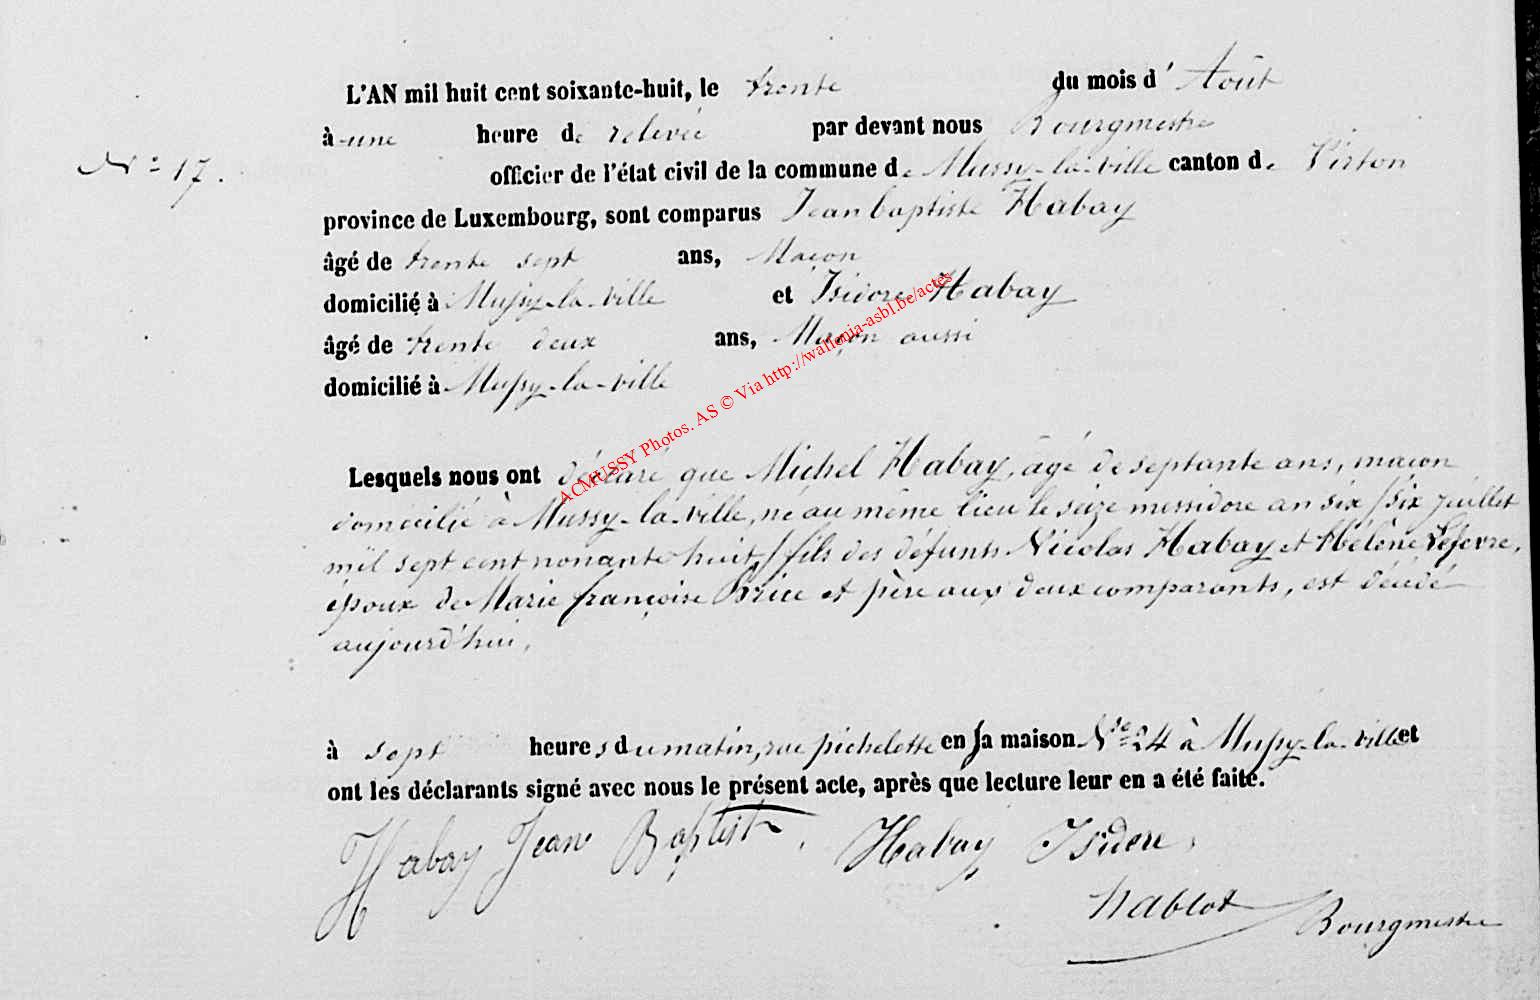 L'AN mil huit cent soixante-huit, le trente du mois d' Août
à une heure de relevée par devant nous Bourgmestre
N° 17. officier de l'état civil de la commune de Mussy-la-ville canton de Virton
province de Luxembourg, sont comparus Jean baptiste Habay
âgé de trente sept ans, Maçon
domicilié à Mussy-la-ville et Isidore Habay
âgé de trente deux ans, Maçon aussi
domicilié à Mussy-la-ville
ACMUSSY Photos. AS © Via http://wallonia-asbl.be/actes
Lesquels nous ont déclaré que Michel Habay, âgé de septante ans, macon
domicilié à Mussy-la-ville, né au même lieu le seize messidore an six /six juillet
mil sept cent nonante huit,/ fils des défunts Nicolas Habay et Hélène Lefevre,
époux de Marie françoise Brice et père aux deux comparants, est décédé
aujourd'hui,
à sept heures du matin, rue pichelotte en sa maison N° 24 à Mussy-la-ville et
ont les déclarants signé avec nous le présent acte, après que lecture leur en a été faite.
Habay Jean Baptist. Habay Isidore,
Nablot Bourgmestre